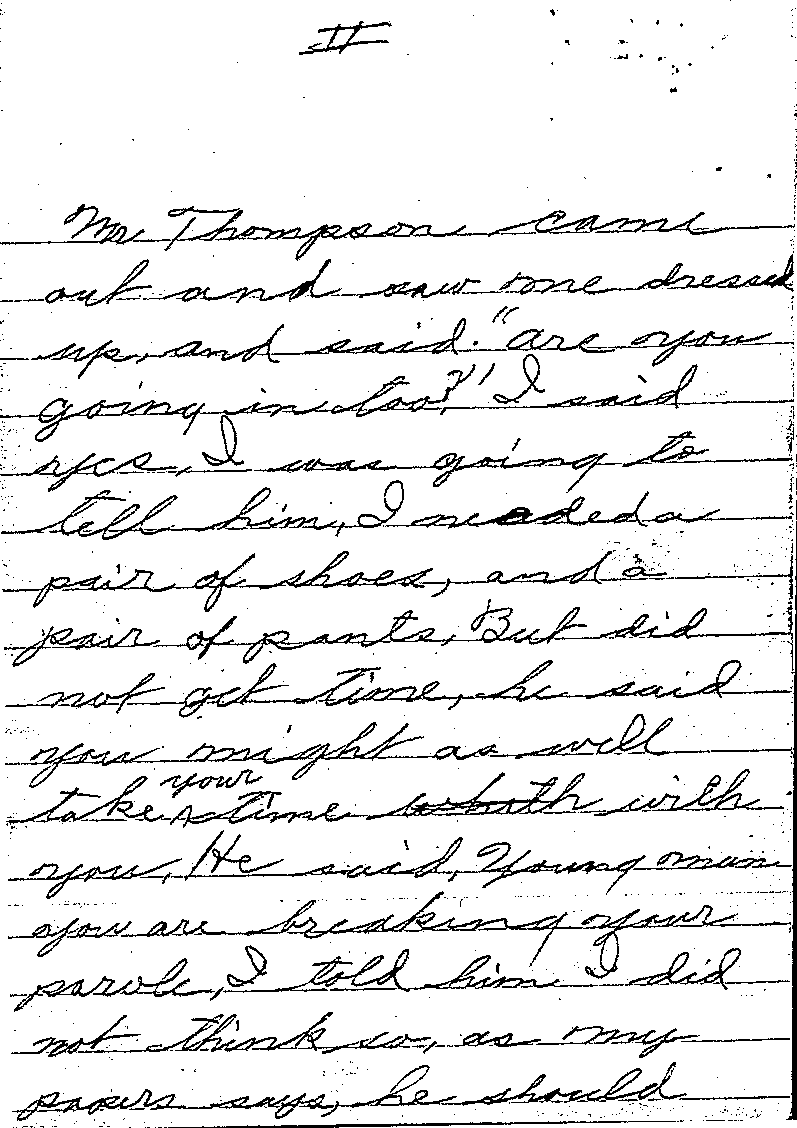 II
Mr. Thompson came
out and saw me dressed
up, and said. "are you
going in too?" I said
yes, I was going to
tell him, I needed a
pair of shoes, and a
pair of pants, But did
not get time, he said
you might as well
take your time with
you, He said, Young man
you are breaking your
parole, I told him I did
not think so, as my
papers says, he should